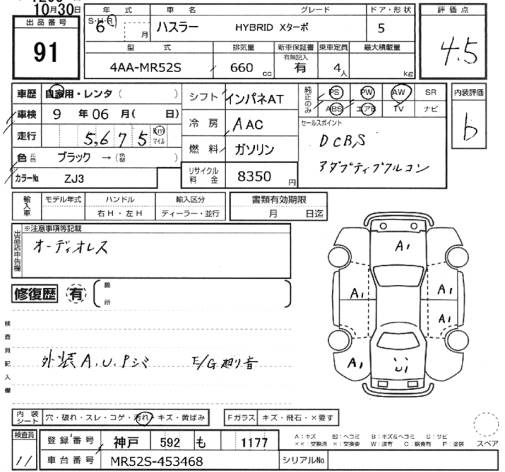 10月30日
出品番号
91
年式
S・H・R 6 年 月
車名
ハスラー
グレード
HYBRID Xターボ
ドア・形状
5
評価点
4.5
型式
4AA-MR52S
排気量
660 cc
新車保証書
有無記入
有
乗車定員
4人
最大積載量
kg
車歴 自家用・レンタ ( )
車検 9 年 06 月 ( 日)
走行 5,675 Km マイル
色 ブラック → ( )
カラーNo ZJ3
シフト インパネAT
冷房 AAC
燃料 ガソリン
リサイクル料金 8350 円
純正のみ
PS PW AW SR
ABS エアB TV ナビ
セールスポイント
DCBS
アダプティブクルコン
内装評価
b
輸入車
モデル年式
ハンドル
右H・左H
輸入区分
ディーラー・並行
書類有効期限
月 日迄
出品店申告欄
※注意事項等記載
オーディオレス
修復歴 有
箇所
検査員記入欄
外装A.U.Pシミ E/G廻り音
A1
A1
A1
A1
A1
U1
内装シート
穴・破れ・スレ・コゲ・汚れ・キズ・黄ばみ
Fガラス キズ・飛石・×要す
検査員
11
登録番号 神戸 592 も 1177
車台番号 MR52S-453468
シリアルNo
スペア